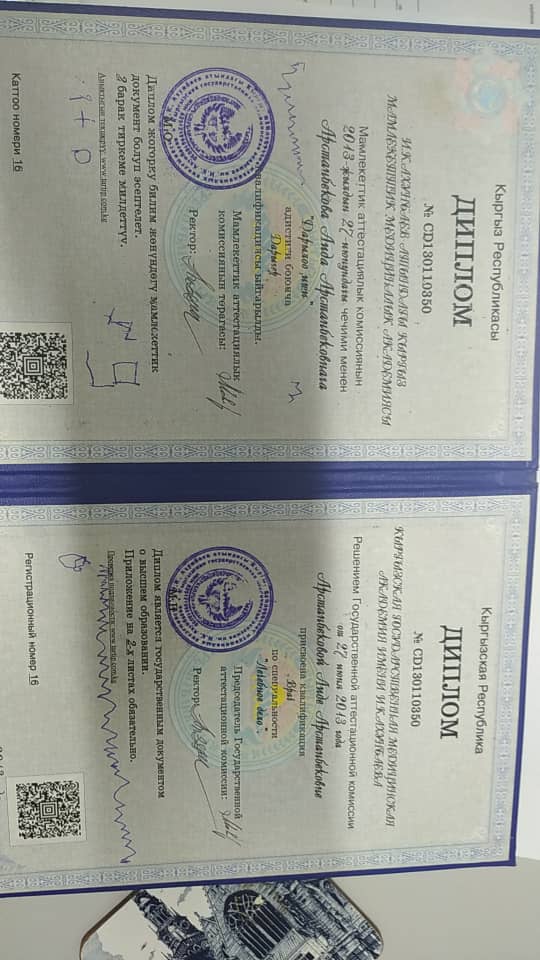 Кыргыз Республикасы
ДИПЛОМ
№ CD130110350
И.К.АХУНБАЕВ АТЫНДАГЫ КЫРГЫЗ
МАМЛЕКЕТТИК МЕДИЦИНАЛЫК АКАДЕМИЯСЫ
Мамлекеттик аттестациялык комиссиянын
2013-жылдын 27-июнундагы чечими менен
Арстанбекова Аида Арстанбековнага
"Дарылоо иши"
адистиги боюнча
Дарыгер
квалификациясы ыйгарылды.
Мамлекеттик аттестациялык
комиссиянын төрагасы:
Ректор:
Диплом жогорку билим жөнүндөгү мамлекеттик
документ болуп эсептелет.
2 барак тиркеме милдеттүү.
Каттоо номери 16
Кыргызская Республика
ДИПЛОМ
№ CD130110350
КЫРГЫЗСКАЯ ГОСУДАРСТВЕННАЯ МЕДИЦИНСКАЯ
АКАДЕМИЯ ИМЕНИ И.К.АХУНБАЕВА
Решением Государственной аттестационной комиссии
от 27 июня 2013 года
Арстанбековой Аиде Арстанбековне
присвоена квалификация
Врач
по специальности
"Лечебное дело"
Председатель Государственной
аттестационной комиссии:
Ректор:
Диплом является государственным документом
о высшем образовании.
Приложение на 2-х листах обязательно.
Регистрационный номер 16